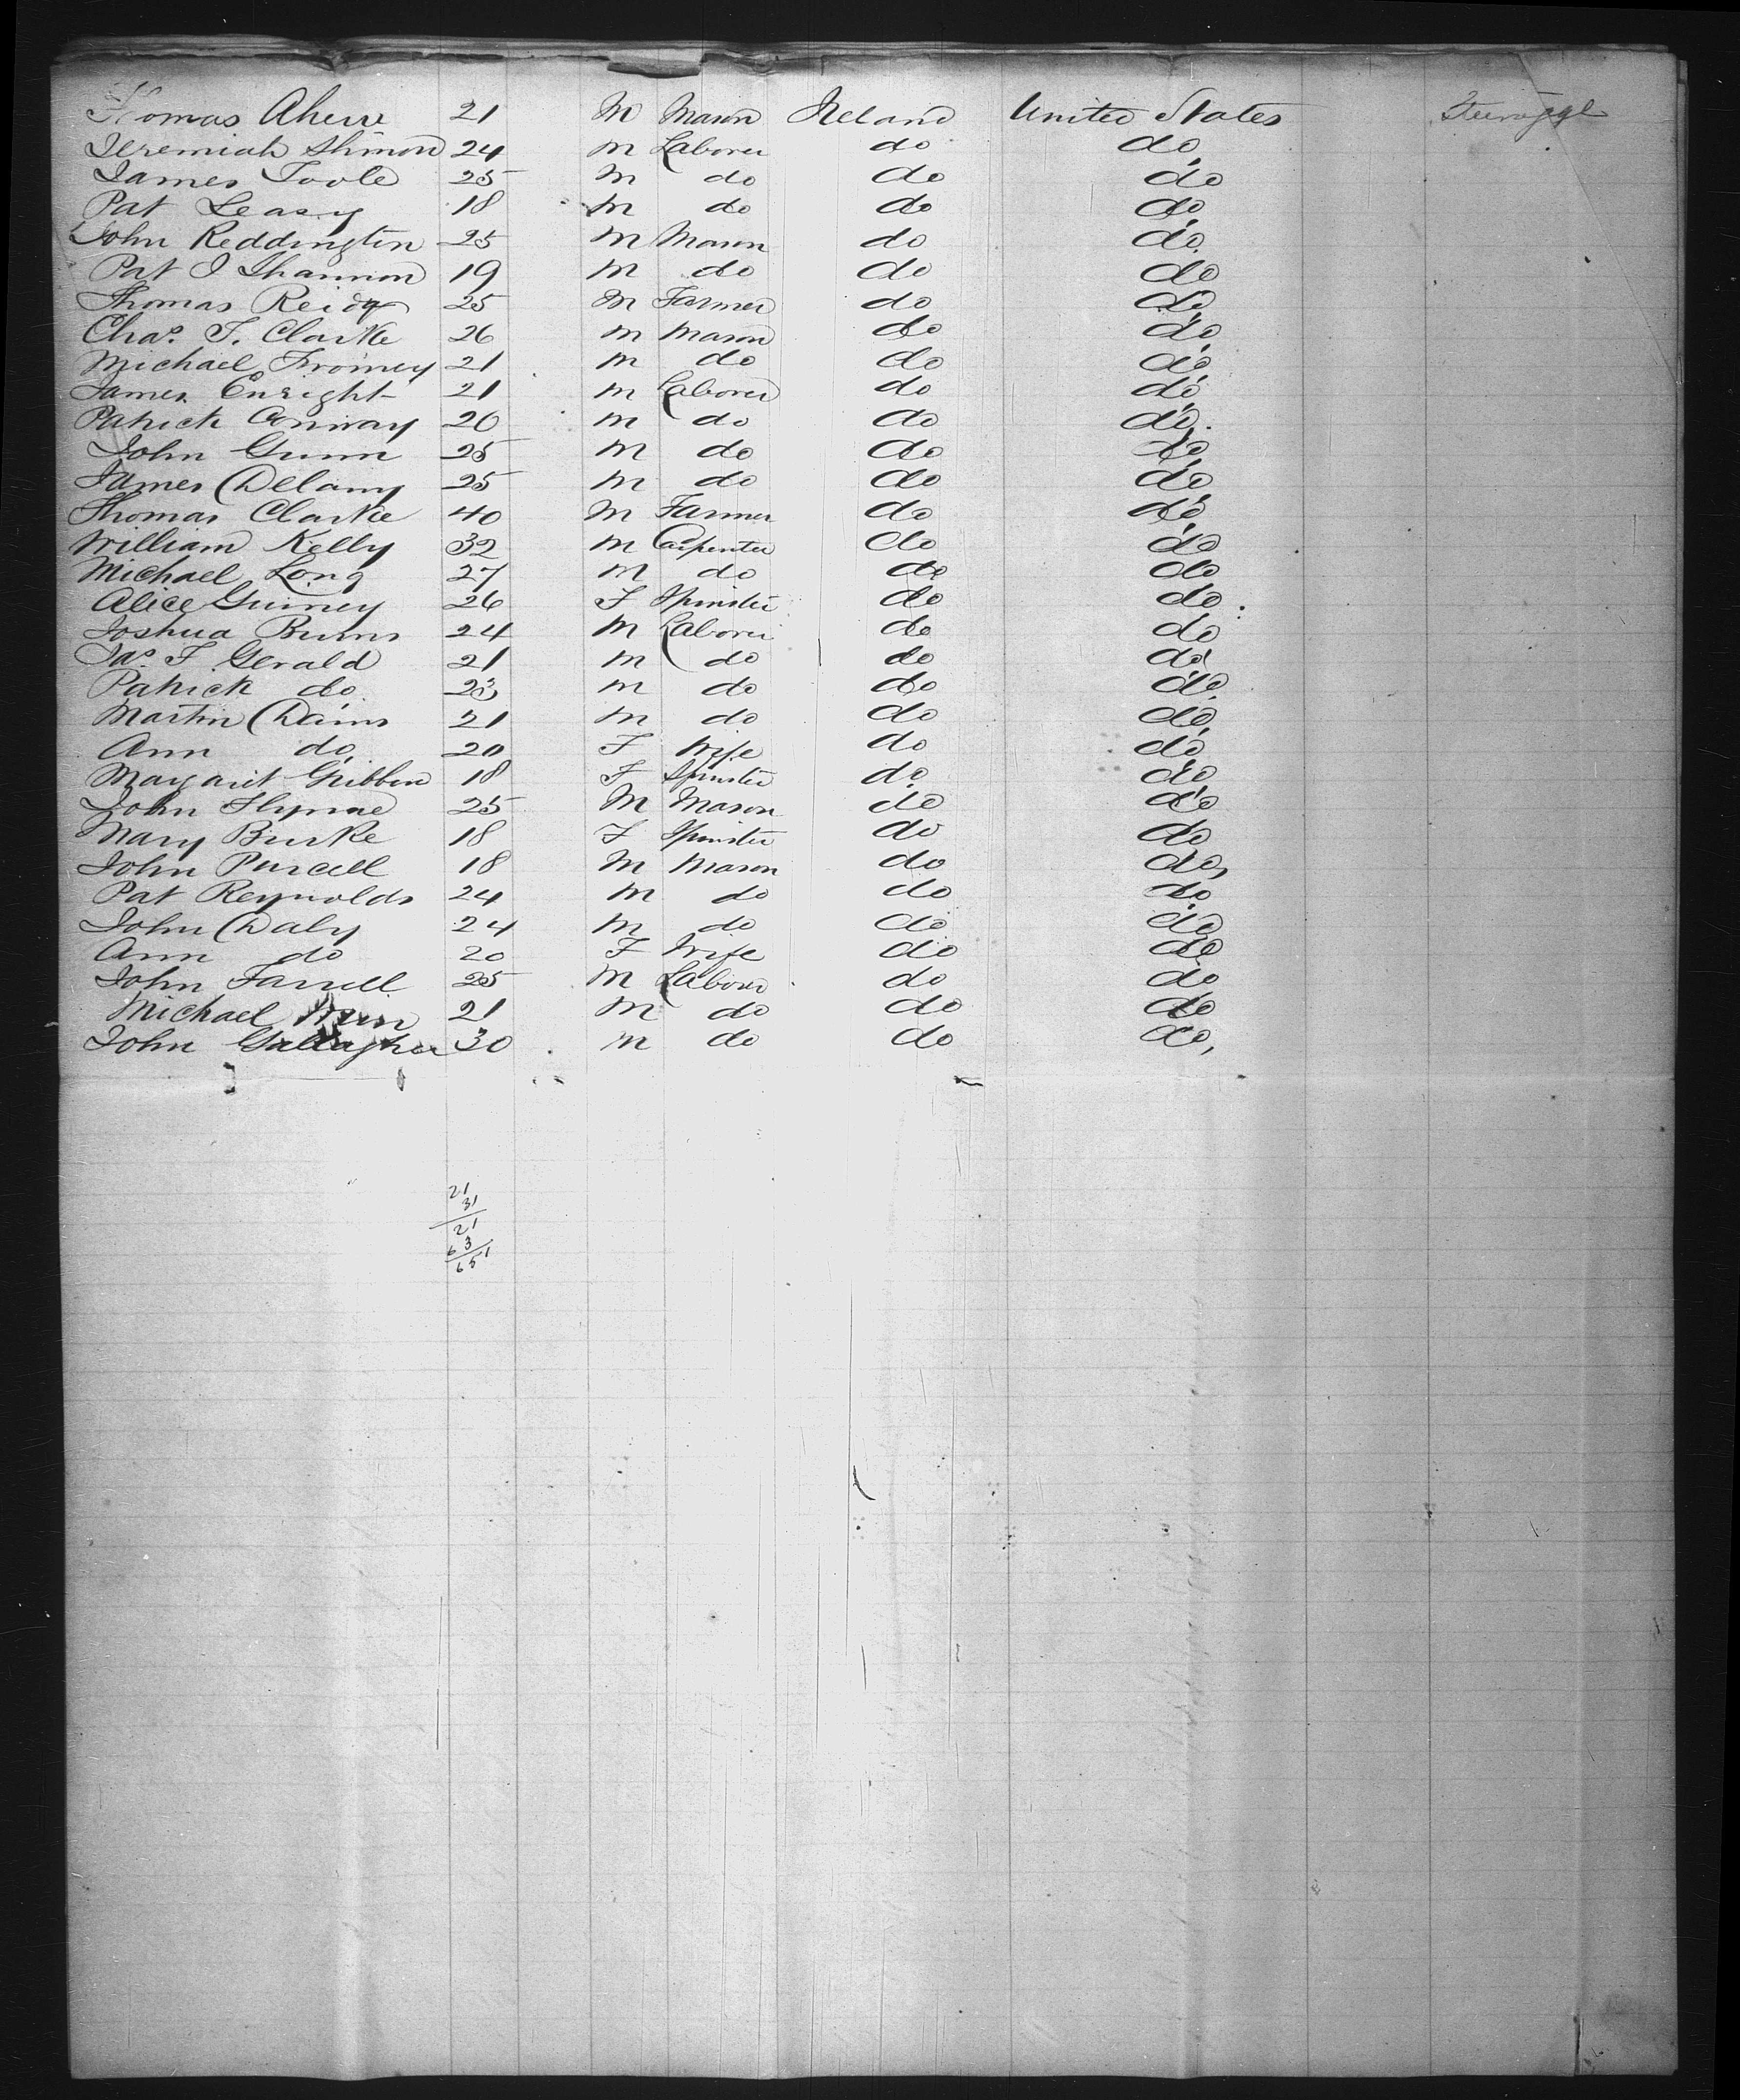 Thomas Aherne 21 M Mason Ireland United States Steerage
Jeremiah Shinon 24 M Laborer do do
James Toole 25 M do do do
Pat Leasy 18 M do do do
John Reddington 25 M Mason do do
Pat J Shannon 19 M do do do
Thomas Reidy 25 M Farmer do do
Chas. T. Clarke 26 M Mason do do
Michael Twomey 21 M do do do
James Enright 21 M Laborer do do
Patrick Conway 20 M do do do
John Gunn 25 M do do do
James Delany 25 M do do do
Thomas Clarke 40 M Farmer do do
William Kelly 32 M Carpenter do do
Michael Long 27 M do do do
Alice Guiney 26 F Spinster do do
Joshua Burns 24 M Laborer do do
Jas. F. Gerald 21 M do do do
Patrick do 23 M do do do
Martin Dains 21 M do do do
Ann do 20 F Wife do do
Margaret Gribbin 18 F Spinster do do
John Flynne 25 M Mason do do
Mary Burke 18 F Spinster do do
John Purcell 18 M Mason do do
Pat Reynolds 24 M do do do
John Daly 24 M do do do
Ann do 20 F Wife do do
John Farrell 25 M Laborer do do
Michael 21 M do do do
John Gallagher 30 M do do do
21
31
21
63
651